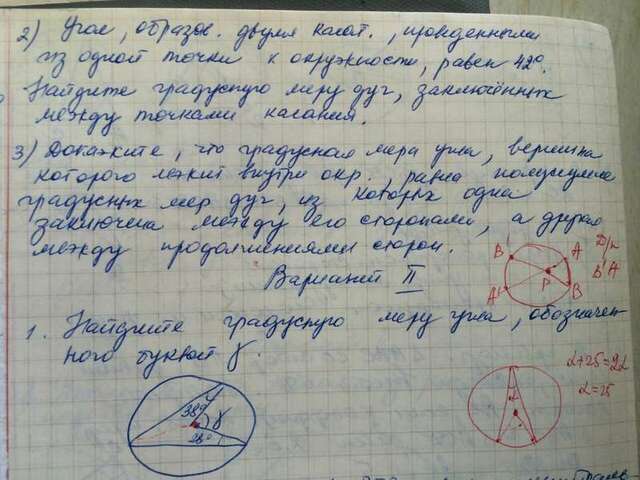 2) Угол, образов. двумя касат., проведенными
из одной точки к окружности, равен 42°.
Найдите градусную меру дуг, заключённых
между точками касания.
3) Докажите, что градусная мера угла, вершина
которого лежит внутри окр., равна полусумме
градусных мер дуг, из которых одна
заключена между его сторонами, а другая
между продолжениями сторон.
B' A
P
A' B
B'A'
Вариант II
1. Найдите градусную меру угла, обозначен-
ного буквой γ.
38° γ
28°
α+25=2α
α=25
α